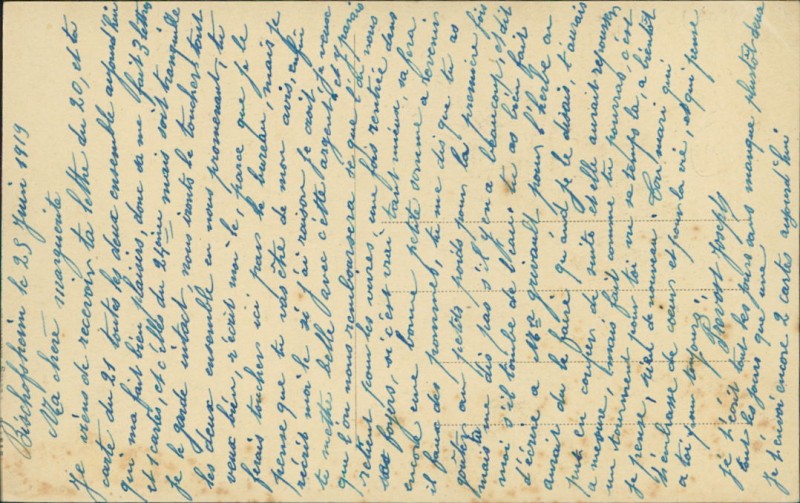 Bischofsheim le 23 Juin 1919
Ma chère marguerite
je viens de recevoir ta lettre du 20, et ta
carte du 21 toutes les deux ensemble aujourd'hui
qui ma fait bien plaisirs, donc sa me fait 3 lettres
et 1 cartes, et celles du 24 mais soit tranquille
je le garde intact nous irons le toucher tout
les deux ensemble en nous promenant, tu
veux bien, récrit moi le, parce que je le
ferais toucher ici par le bureau, mais je
pense que tu vas être de mon avis, aussi
récris moi le si j'ai raison je sait que
ta mettre belle avec cette argent, je veux
que l'on nous remboursera se que l'état nous
retient pour les vivres une fois rentrée dans
ses foyers, si c'est vrai tant mieux, sa fera
encore une bonne petite somme a revenir
il faux des pommes, tu me dis que tu as
goûter au petits poids pour la première fois
mais tu ne dis pas s'il y en a beaucoup, et dit
moi s'il tombe de l'eau. tu as bien fait
d'écrire a Mme Grivault pour l'herbe on
aurait du le faire quand je le disais, t'aurais
put en couper de suite et elle aurait repousser
a mesure, mais fait comme tu pourras, c'est
un tourment pour toi en se temps la, a bientôt
je pense, rien de nouveau. Ton mari qui
t'embrasse de coeur et pour la vie, et qui pense
a toi pour toujours
Prevost Joseph
je t'écrit tout les jours sans manque plustôt deux
tout les jours que une
je t'envoi encore 2 cartes aujourd'hui